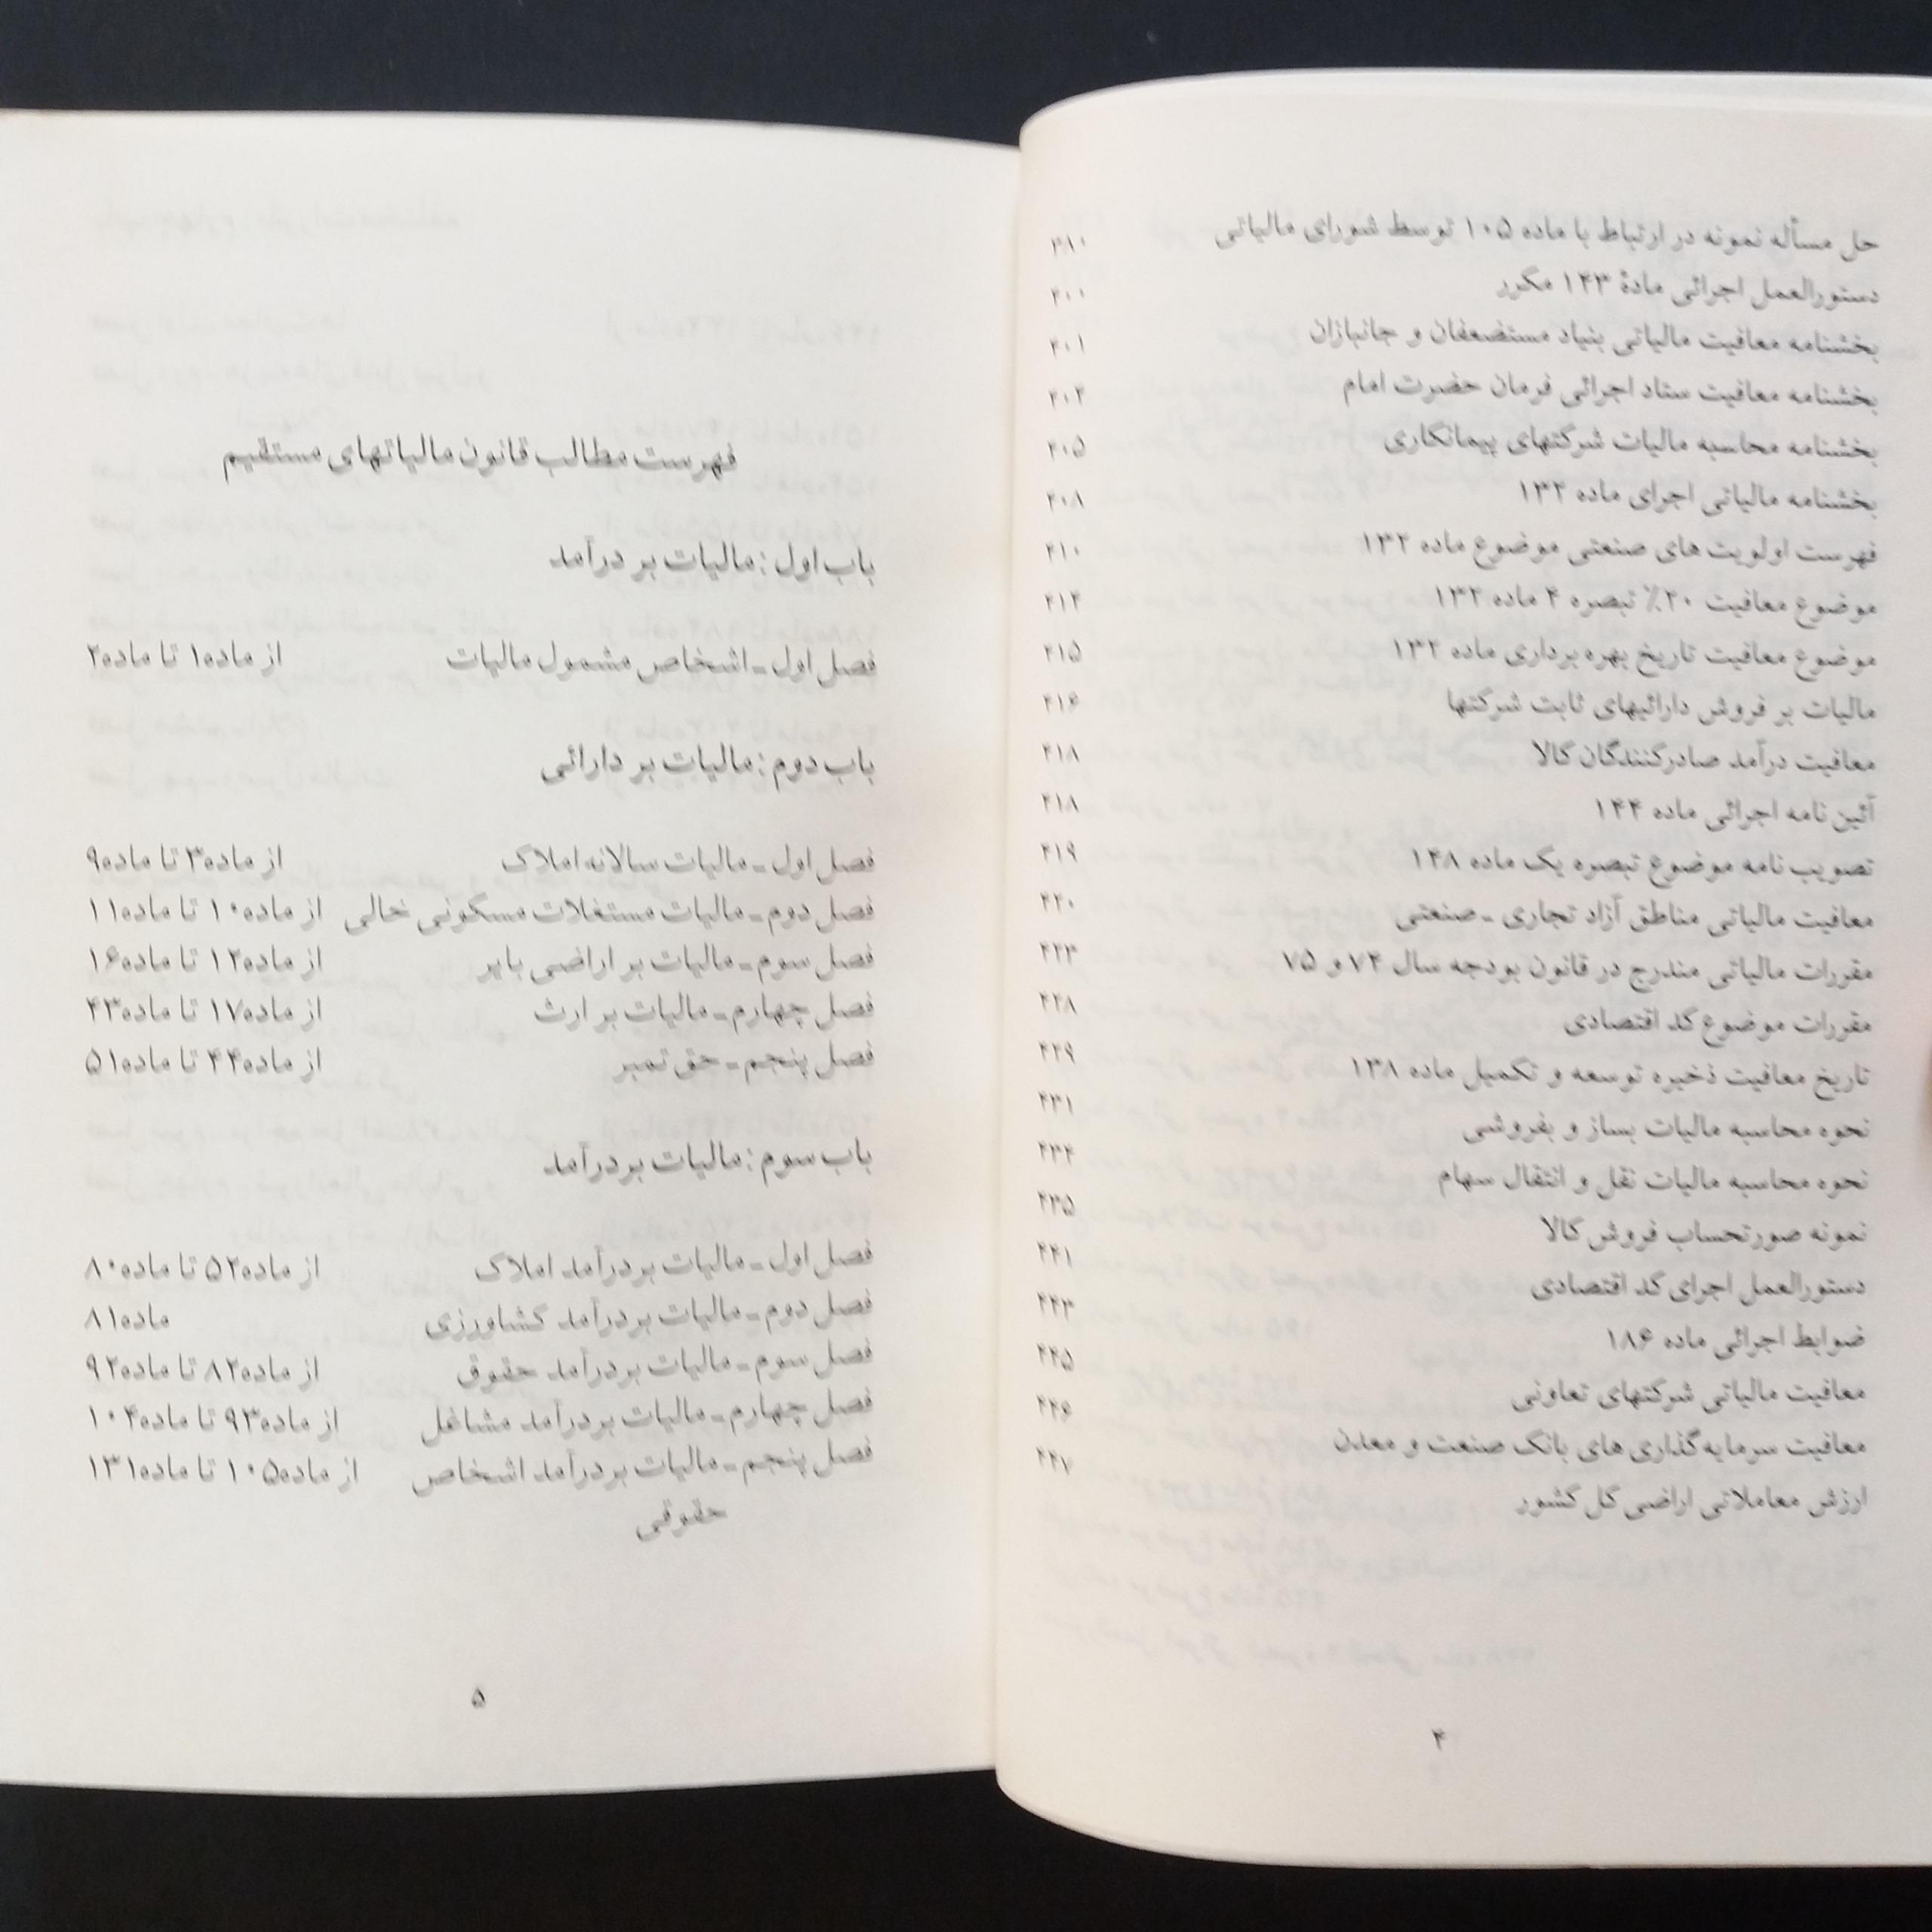 حل مسأله نمونه در ارتباط با ماده ۱۰۵ توسط شورای مالیاتی ۳۸۰
دستورالعمل اجرائی مادهٔ ۱۴۳ مکرر ۴۰۰
بخشنامه معافیت مالیاتی بنیاد مستضعفان و جانبازان ۴۰۱
بخشنامه معافیت ستاد اجرائی فرمان حضرت امام ۴۰۴
بخشنامه محاسبه مالیات شرکتهای پیمانکاری ۴۰۵
بخشنامه مالیاتی اجرای ماده ۱۳۲ ۴۰۸
فهرست اولویت های صنعتی موضوع ماده ۱۳۲ ۴۱۰
موضوع معافیت ۲۰٪ تبصره ۴ ماده ۱۳۲ ۴۱۴
موضوع معافیت تاریخ بهره برداری ماده ۱۳۲ ۴۱۵
مالیات بر فروش دارائیهای ثابت شرکتها ۴۱۶
معافیت درآمد صادرکنندگان کالا ۴۱۸
آئین نامه اجرائی ماده ۱۴۴ ۴۱۸
تصویب نامه موضوع تبصره یک ماده ۱۴۸ ۴۱۹
معافیت مالیاتی مناطق آزاد تجاری ـ صنعتی ۴۲۰
مقررات مالیاتی مندرج در قانون بودجه سال ۷۴ و ۷۵ ۴۲۳
مقررات موضوع کد اقتصادی ۴۲۸
تاریخ معافیت ذخیره توسعه و تکمیل ماده ۱۳۸ ۴۲۹
نحوه محاسبه مالیات بساز و بفروشی ۴۳۱
نحوه محاسبه مالیات نقل و انتقال سهام ۴۳۴
نمونه صورتحساب فروش کالا ۴۳۵
دستورالعمل اجرای کد اقتصادی ۴۴۱
ضوابط اجرائی ماده ۱۸۶ ۴۴۳
معافیت مالیاتی شرکتهای تعاونی ۴۴۵
معافیت سرمایه گذاری های بانک صنعت و معدن ۴۴۶
ارزش معاملاتی اراضی کل کشور ۴۴۷
۴
فهرست مطالب قانون مالیاتهای مستقیم
باب اول : مالیات بر درآمد
فصل اول ـ اشخاص مشمول مالیات از ماده۱ تا ماده۲
باب دوم : مالیات بر دارائی
فصل اول ـ مالیات سالانه املاک از ماده۳ تا ماده۹
فصل دوم ـ مالیات مستغلات مسکونی خالی از ماده۱۰ تا ماده۱۱
فصل سوم ـ مالیات بر اراضی بایر از ماده۱۲ تا ماده۱۶
فصل چهارم ـ مالیات بر ارث از ماده۱۷ تا ماده۴۳
فصل پنجم ـ حق تمبر از ماده۴۴ تا ماده۵۱
باب سوم : مالیات بردرآمد
فصل اول ـ مالیات بردرآمد املاک از ماده۵۲ تا ماده۸۰
فصل دوم ـ مالیات بردرآمد کشاورزی ماده۸۱
فصل سوم ـ مالیات بردرآمد حقوق از ماده۸۲ تا ماده۹۲
فصل چهارم ـ مالیات بردرآمد مشاغل از ماده۹۳ تا ماده۱۰۴
فصل پنجم ـ مالیات بردرآمد اشخاص از ماده۱۰۵ تا ماده۱۳۱
حقوقی
۵